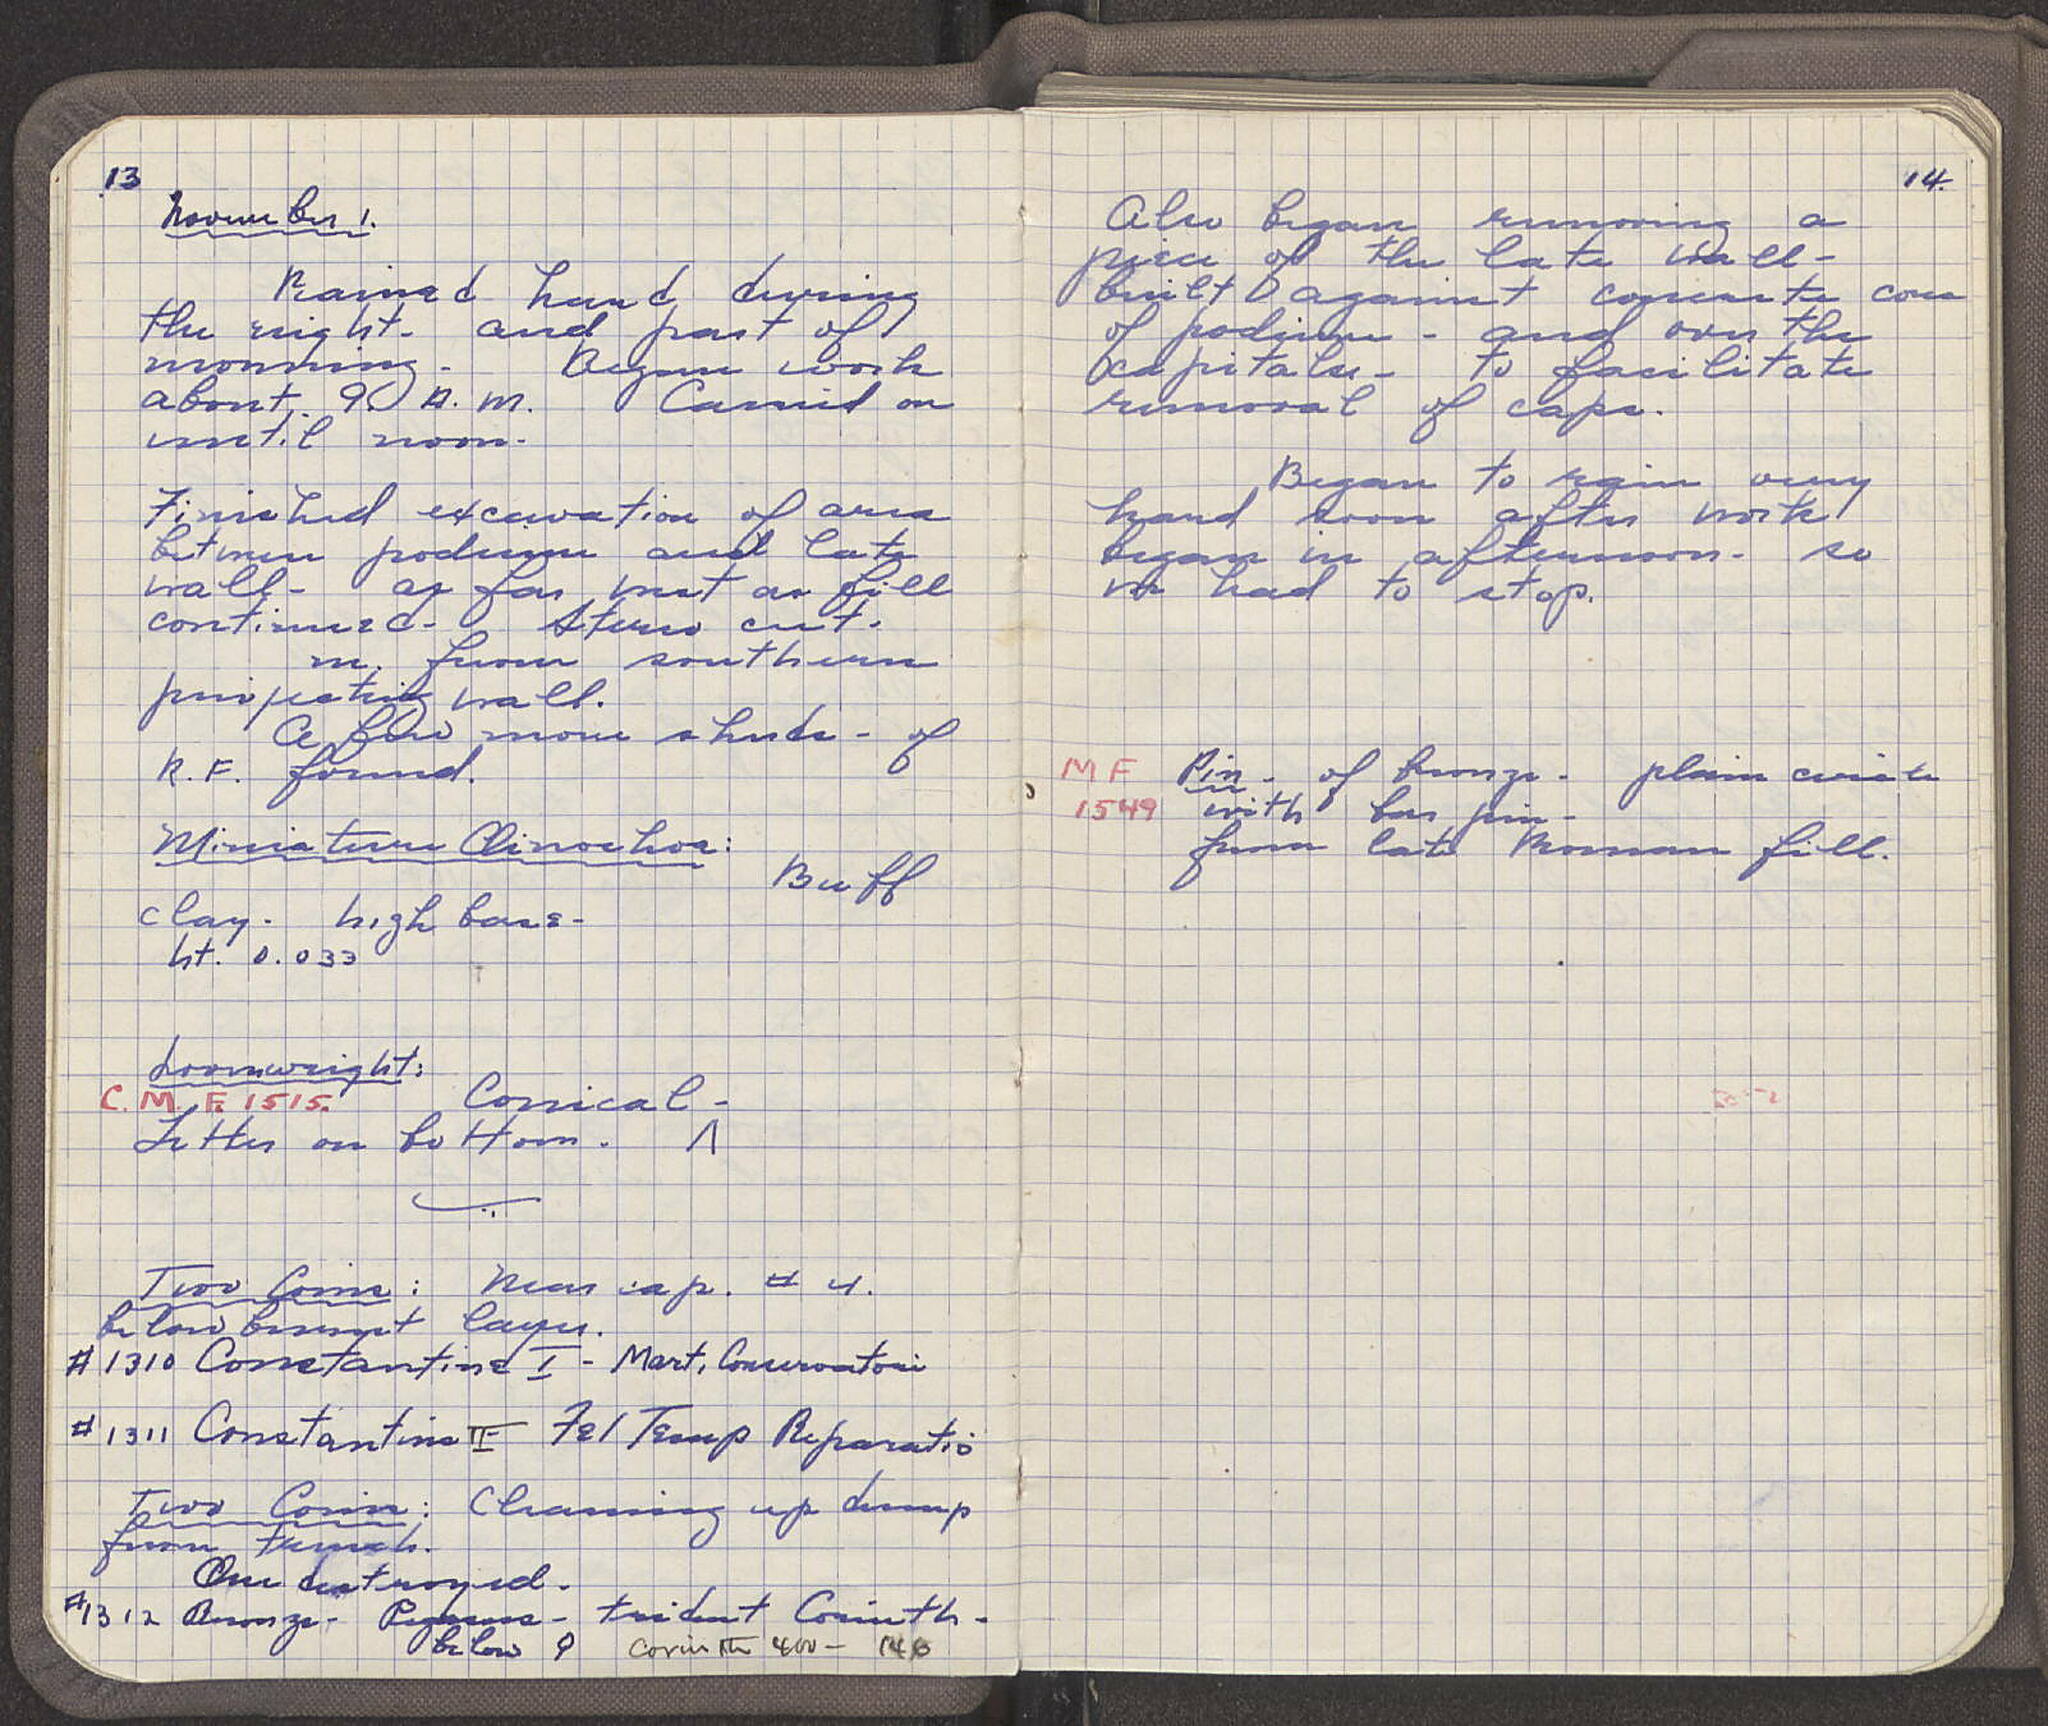 13
November 1.
Rained hard during
the night - and part of
morning - Began work
about 9. A.M. Carried on
until noon.
Finished excavation of area
between podium and late
wall - as far west as fill
continued - Sterns cut.
m. from southern
projecting wall.
A few more sherds - of
R.F. found.
Miniature Oinochoe:
Buff
clay. high base -
ht. 0.033
Loomweight:
C. M. F. 1515.
Conical -
Letter on bottom. Λ
Two Coins: Near cap. # 4.
below burnt layer.
# 1310 Constantine I - Mart. Conservatori
# 1311 Constantine II Fel Temp Reparatio
Two Coins: Cleaning up dump
from trench.
One destroyed -
#1312 Bronze - Pegasus - trident Corinth -
below ϙ Corinth 400 - 146
14.
Also began removing a
piece of the late wall -
built against concrete core
of podium - and over the
capitals - to facilitate
removal of caps.
Began to rain very
hard soon after work
began in afternoon - so
we had to stop.
MF
1549
Pin - of bronze - plain circle
with bar pin -
from late Roman fill.